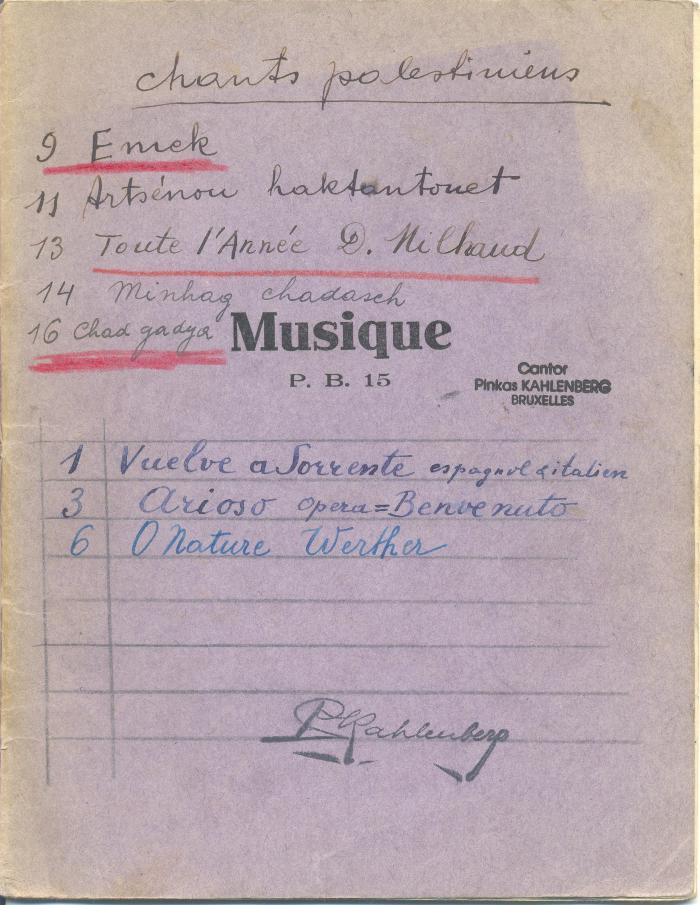 chants palestiniens
9 Emek
11 Artsénou haktantouet
13 Toute l'Année D. Milhaud
14 Minhag chadasch
16 Chad gadya
Musique
P. B. 15
Cantor
Pinkas KAHLENBERG
BRUXELLES
1 Vuelve a Sorrente espagnol & italien
3 Arioso opera=Benvenuto
6 O Nature Werther
P Kahlenberg